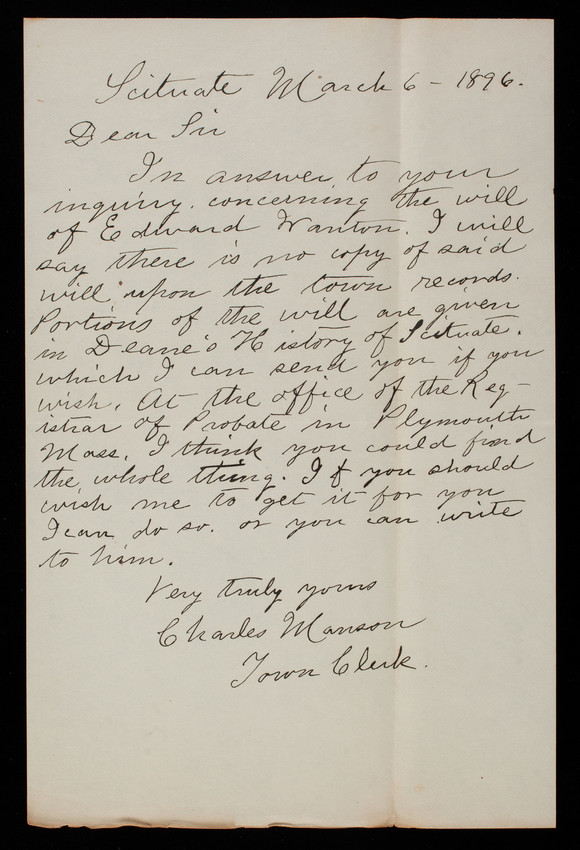 Scituate March 6 - 1896.
Dear Sir
In answer to your
inquiry concerning the will
of Edward Wanton. I will
say there is no copy of said
will upon the town records.
Portions of the will are given
in Deane's History of Scituate.
which I can send you if you
wish. At the office of the Reg-
istrar of Probate in Plymouth
Mass. I think you could find
the whole thing. If you should
wish me to get it for you
I can do so. or you can write
to him.
Very truly yours
Charles Manson
Town Clerk.